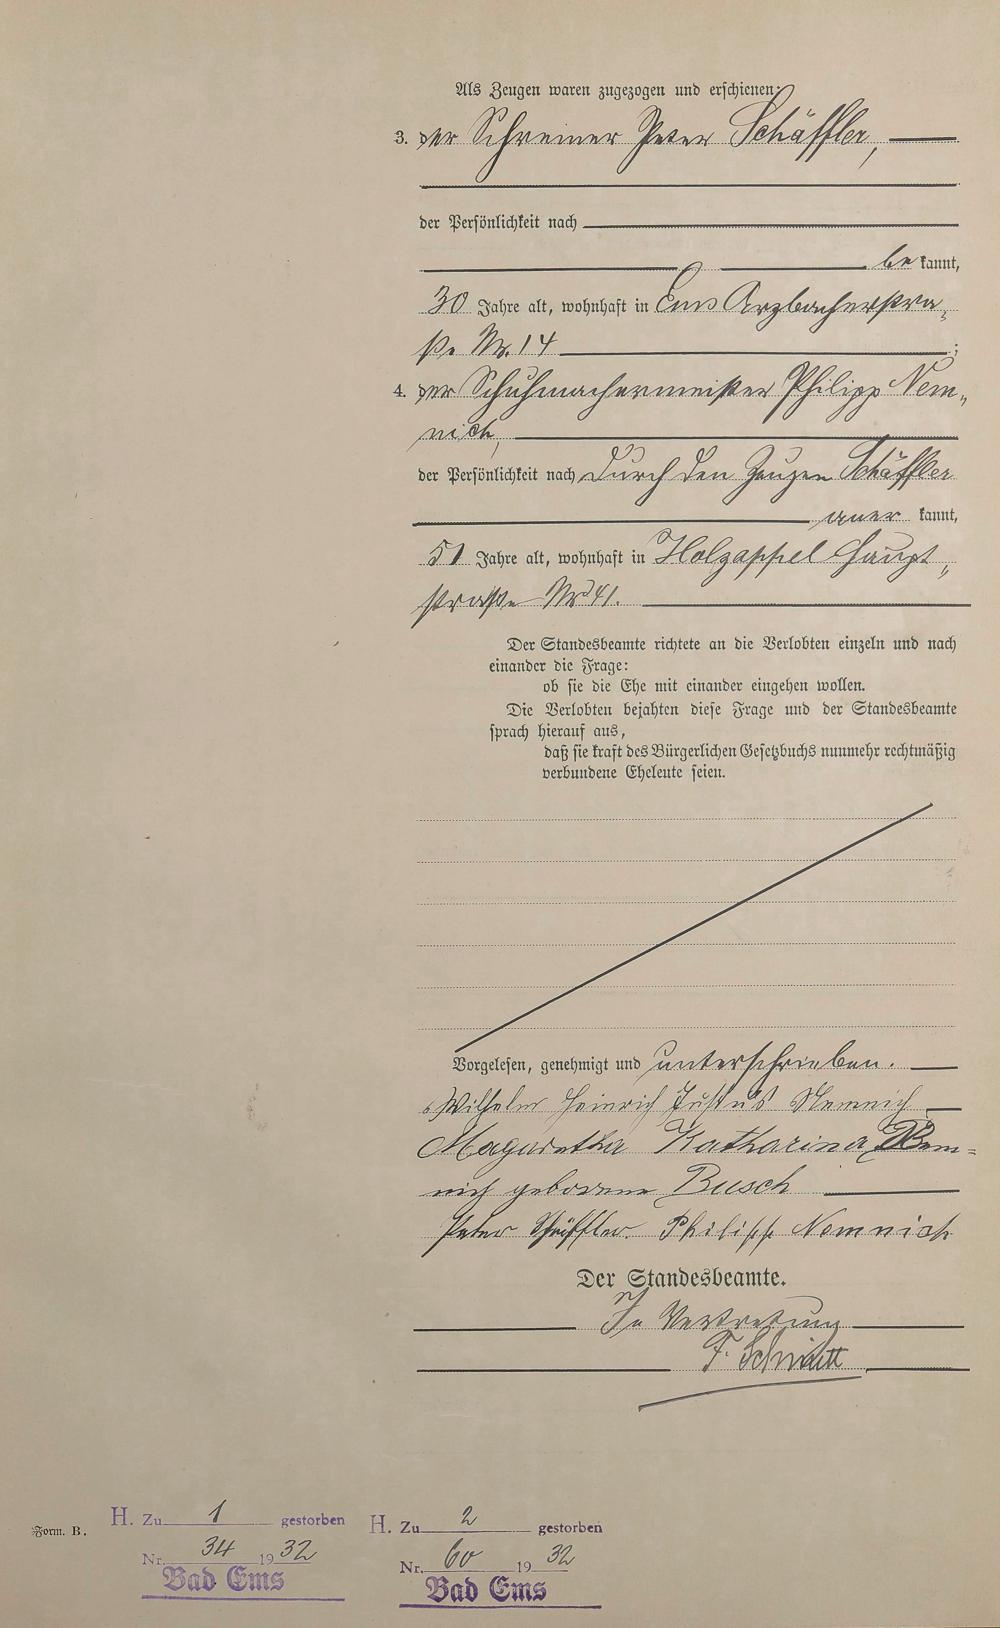 Als Zeugen waren zugezogen und erschienen:
3. der Schreiner Peter Schäffler,
der Persönlichkeit nach
be kannt,
30 Jahre alt, wohnhaft in Ems Arzbacherstra-
ße Nr. 14 ;
4. der Schuhmachermeister Philipp Nem-
nich,
der Persönlichkeit nach durch den Zeugen Schäffler
aner kannt,
51 Jahre alt, wohnhaft in Holzappel Haupt-
straße Nr 41.
Der Standesbeamte richtete an die Verlobten einzeln und nach
einander die Frage:
ob sie die Ehe mit einander eingehen wollen.
Die Verlobten bejahten diese Frage und der Standesbeamte
sprach hierauf aus,
daß sie kraft des Bürgerlichen Gesetzbuchs nunmehr rechtmäßig
verbundene Eheleute seien.
Vorgelesen, genehmigt und unterschrieben.
Wilhelm Heinrich Justus Nemnich
Magaretha Katharina Nem-
nich geborene Busch
Peter Schäffler. Philipp Nemnich
Der Standesbeamte.
In Vertretung
F. Schmitt
Form. B.
H. Zu 1 gestorben
Nr. 34 1932
Bad Ems
H. Zu 2 gestorben
Nr. 60 1932
Bad Ems